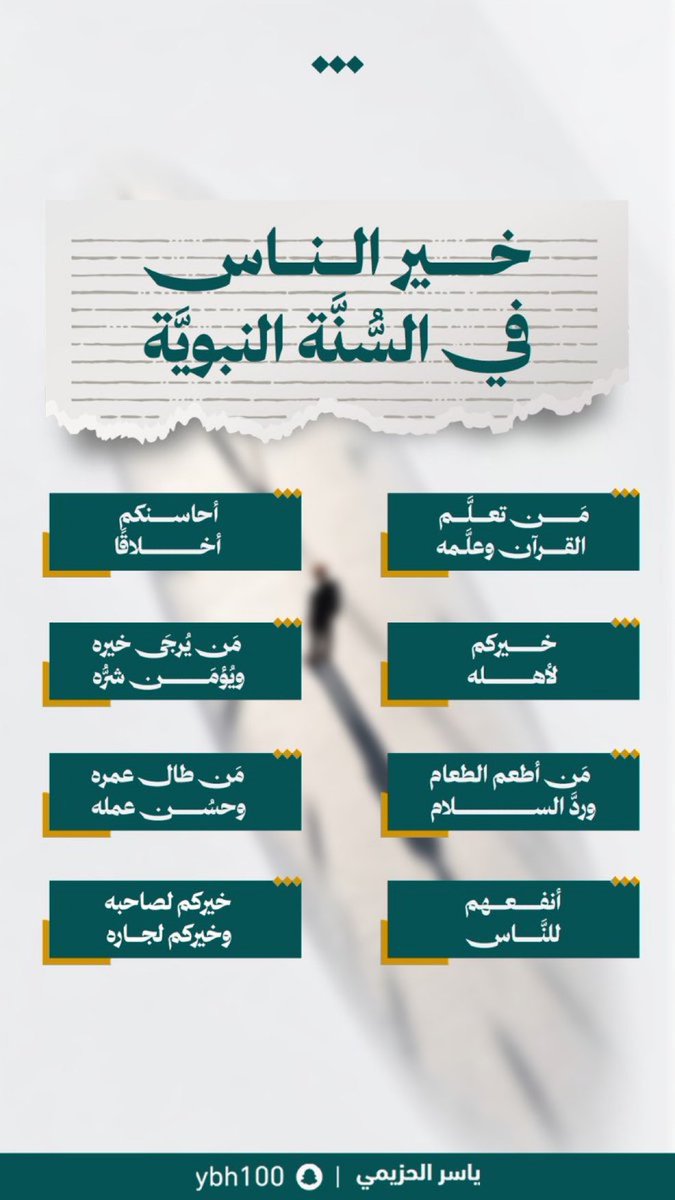 خير الناس
في السُّنَّة النبويَّة
مَن تعلَّم
القرآن وعلَّمه
أحاسنكم
أخلاقًا
خيركم
لأهله
مَن يُرجَى خيره
ويُؤمَن شرُّه
مَن أطعم الطعام
وردَّ السلام
مَن طال عمره
وحسُن عمله
أنفعهم
للنَّاس
خيركم لصاحبه
وخيركم لجاره
ياسر الحزيمي | ybh100